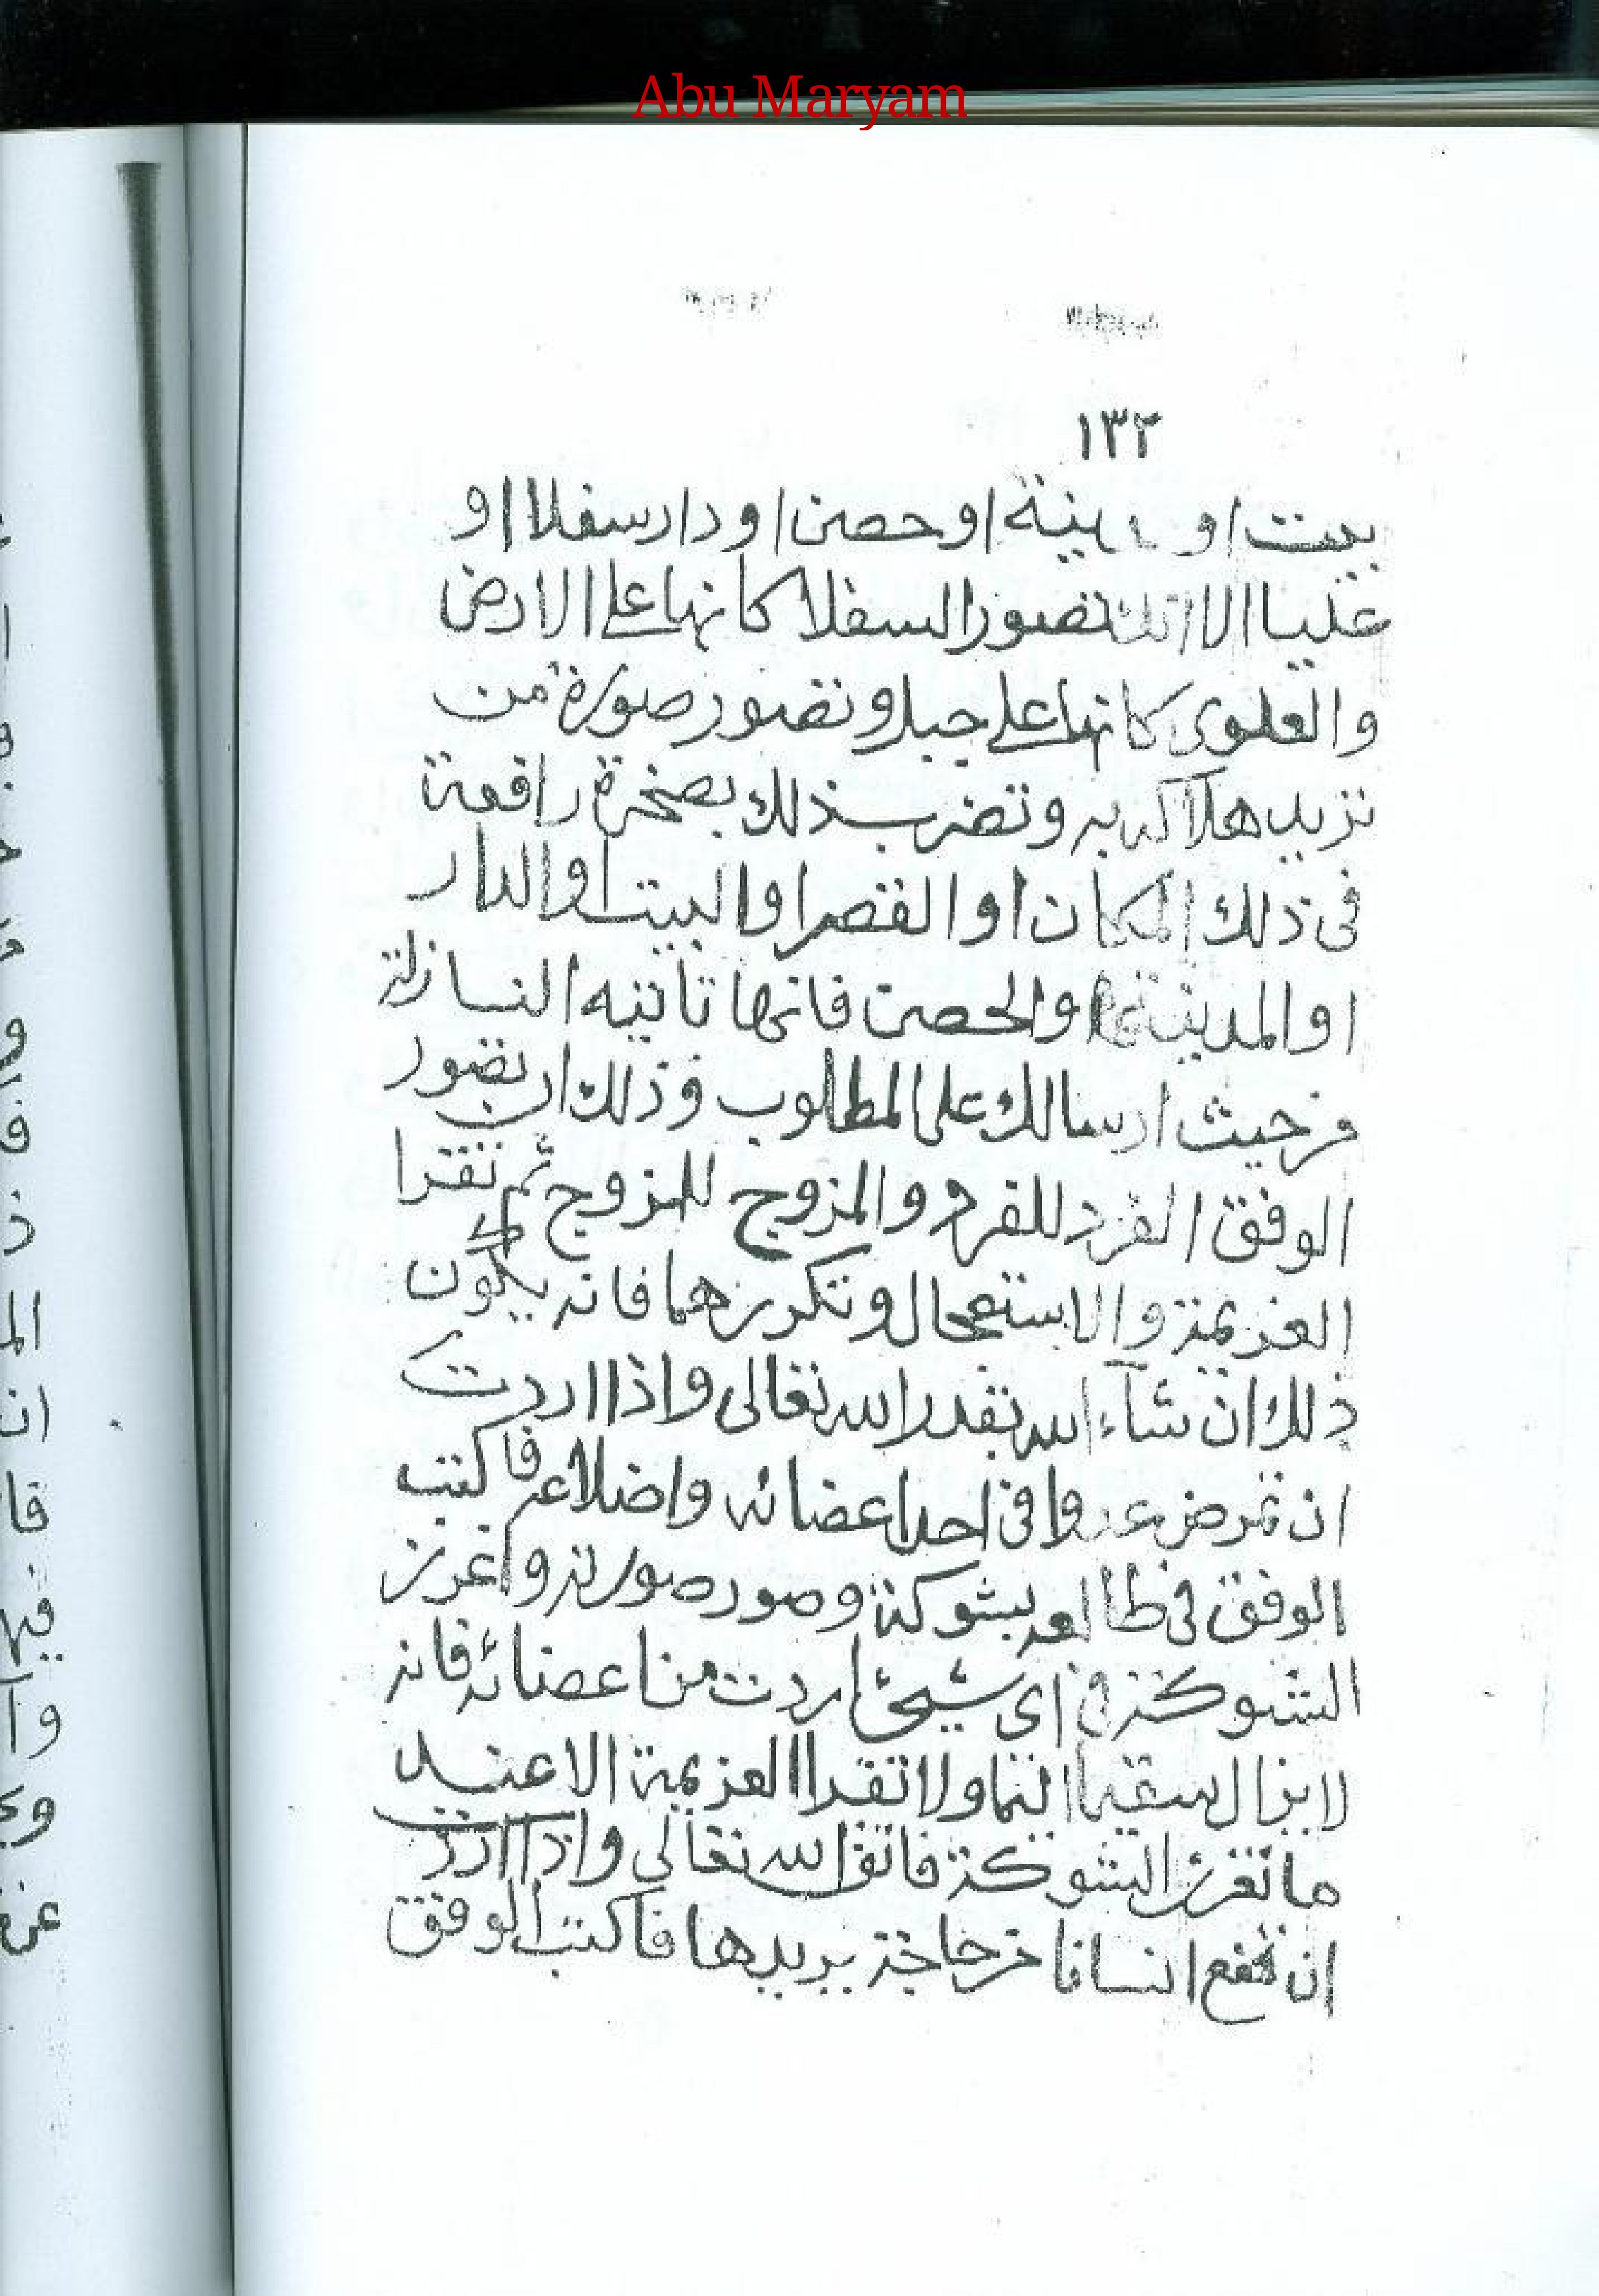 Abu Maryam
١٣٢
بيت او ينة او حصن او دار سفلا او
عليا الا انك تصور السفلا كانها على الارض
والعلوى كانها على جبل وتصور صورة من
تريد هلاكه به وتضرب ذلك بصخرة راقعة
فى ذلك المكان او القصر او البيت او الدار
او المدينة او الحصن فانها تاتيه النازلة
من حيث ارسالك على المطلوب وذلك ان تصور
الوفق الفرد للفرد والمزوج للمزوج ثم تقرا
العزيمة والاستعجال وتكررهما فانه يكون لك
ذلك ان شآء الله بقدر الله تعالى واذا اردت
ان تمرض عدوا فى احد اعضائه واضلاعه فاكتب
الوفق فى طالعه بشوكة وصور صورته واغرز
الشوكة فى اى شيئ اردت من اعضائه فانه
لا يزال سقيما ولا تقرا العزيمة الا عند
ما تغرز الشوكة فاتق الله تعالى واذا اردت
ان تمنع انسانا من حاجة يريدها فاكتب الوفق